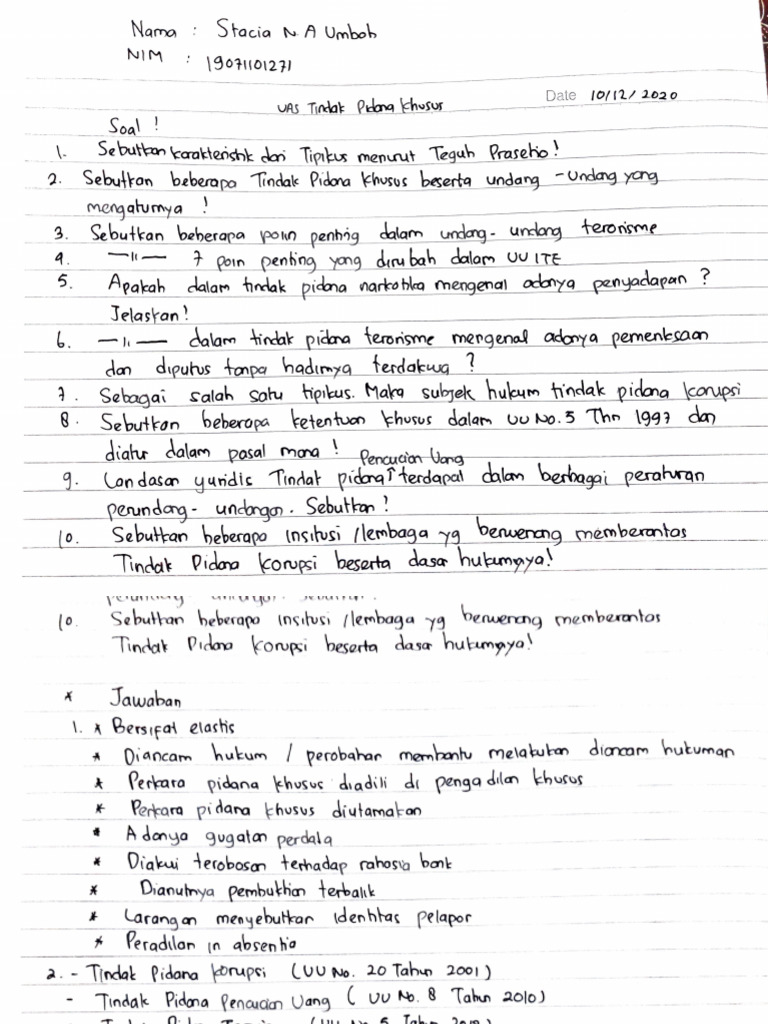 Nama : Stacia N A Umboh
NIM : 19071101271
Date 10/12/2020
UAS Tindak Pidana Khusus
Soal !
1. Sebutkan karakteristik dari Tipikus menurut Teguh Prasetio!
2. Sebutkan beberapa Tindak Pidana Khusus beserta undang - Undang yang
mengaturnya !
3. Sebutkan beberapa poin penting dalam undang- undang terorisme
4. —〃— 7 poin penting yang dirubah dalam UU ITE
5. Apakah dalam tindak pidana narkotika mengenal adanya penyadapan ?
Jelaskan!
6. —〃— dalam tindak pidana terorisme mengenal adanya pemeriksaan
dan diputus tanpa hadirnya terdakwa ?
7. Sebagai salah satu tipikus. Maka subjek hukum tindak pidana korupsi
8. Sebutkan beberapa ketentuan khusus dalam UU No. 5 Thn 1997 dan
diatur dalam pasal mana !
Pencucian Uang
9. Landasan yuridis Tindak pidana↑ terdapat dalam berbagai peraturan
perundang- undangan. Sebutkan !
10. Sebutkan beberapa insitusi /lembaga yg berwenang memberantas
Tindak Pidana korupsi beserta dasar hukumnya!
10. Sebutkan beberapa insitusi /lembaga yg berwenang memberantas
Tindak Pidana korupsi beserta dasar hukumnya!
* Jawaban
1. * Bersifat elastis
* Diancam hukum / perobahan membantu melakukan diancam hukuman
* Perkara pidana khusus diadili di pengadilan khusus
* Perkara pidana khusus diutamakan
* Adanya gugatan perdata
* Diakui terobosan terhadap rahasia bank
* Dianutnya pembuktian terbalik
* Larangan menyebutkan identitas pelapor
* Peradilan in absentia
2. - Tindak Pidana Korupsi (UU No. 20 Tahun 2001)
- Tindak Pidana Pencucian Uang ( UU No. 8 Tahun 2010)